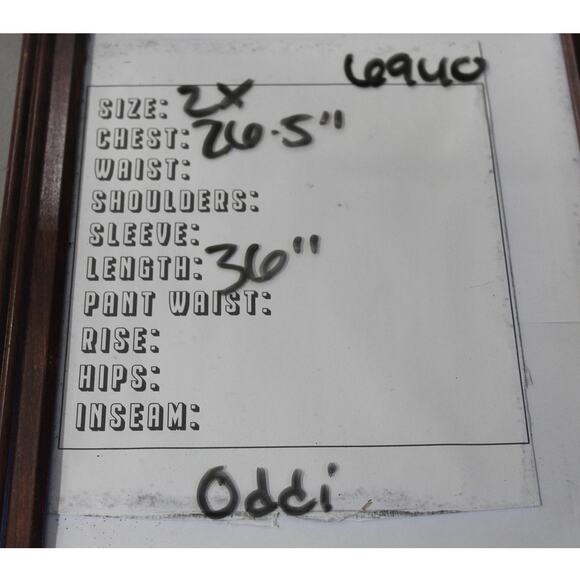 6940
SIZE: 2X
CHEST: 26.5"
WAIST:
SHOULDERS:
SLEEVE:
LENGTH: 36"
PANT WAIST:
RISE:
HIPS:
INSEAM:
Oddi